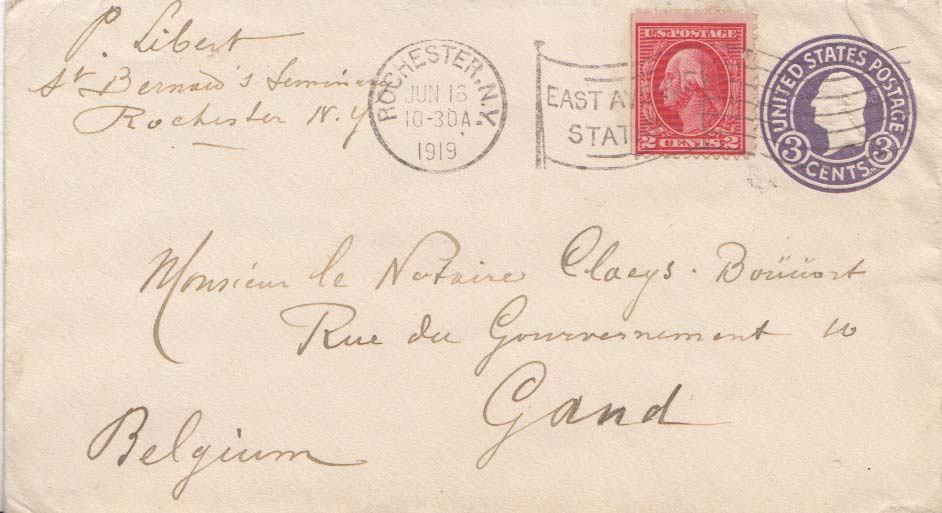 P. Libert
St Bernard's Seminar
Rochester N.Y
ROCHESTER, N.Y.
JUN 16
10-30A
1919
EAST AV
STAT
U.S. POSTAGE
2 CENTS 2
UNITED STATES POSTAGE
3 CENTS 3
Monsieur le Notaire Claeys-Boüüart
Rue du Gouvernement 10
Gand
Belgium